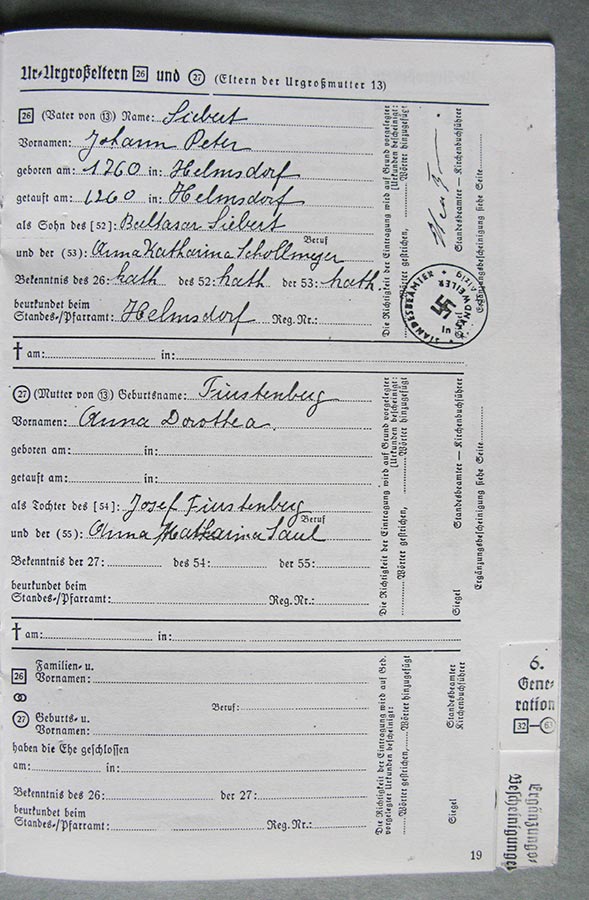 Ur-Urgroßeltern 26 und 27 (Eltern der Urgroßmutter 13)
26 (Vater von 13) Name: Siebert
Vornamen: Johann Peter
geboren am: 1760 in: Helmsdorf
getauft am: 1760 in: Helmsdorf
als Sohn des [52]: Baltasar Siebert
Beruf
und der (53): Anna Katharina Schollmeyer
Bekenntnis des 26: kath des 52: kath der 53: kath.
beurkundet beim
Standes-/Pfarramt: Helmsdorf Reg.Nr.:
† am: in:
Die Richtigkeit der Eintragung wird auf Grund vorgelegter
Urkunden bescheinigt:
Wörter gestrichen, Wörter hinzugefügt
Standesbeamter — Kirchenbuchführer
Siegel
Ergänzungsbescheinigung siehe Seite
STANDESBEAMTER
27 (Mutter von 13) Geburtsname: Fürstenberg
Vornamen: Anna Dorothea
geboren am: in:
getauft am: in:
als Tochter des [54]: Josef Fürstenberg
Beruf
und der (55): Anna Katharina Saul
Bekenntnis der 27: des 54: der 55:
beurkundet beim
Standes-/Pfarramt: Reg.Nr.:
† am: in:
Die Richtigkeit der Eintragung wird auf Grund vorgelegter
Urkunden bescheinigt:
Wörter gestrichen, Wörter hinzugefügt
Standesbeamter — Kirchenbuchführer
Siegel
Ergänzungsbescheinigung siehe Seite
26 Familien- u.
Vornamen:
Beruf:
27 Geburts- u.
Vornamen:
haben die Ehe geschlossen
am: in:
Bekenntnis des 26: der 27:
beurkundet beim
Standes-/Pfarramt: Reg.Nr.:
Die Richtigkeit der Eintragung wird auf Grd.
vorgelegter Urkunden bescheinigt:
Wörter gestrichen, Wörter hinzugefügt
Standesbeamter
Kirchenbuchführer
Siegel
6.
Gene-
ration
32—63
Ergänzungs-
bescheinigungen
19